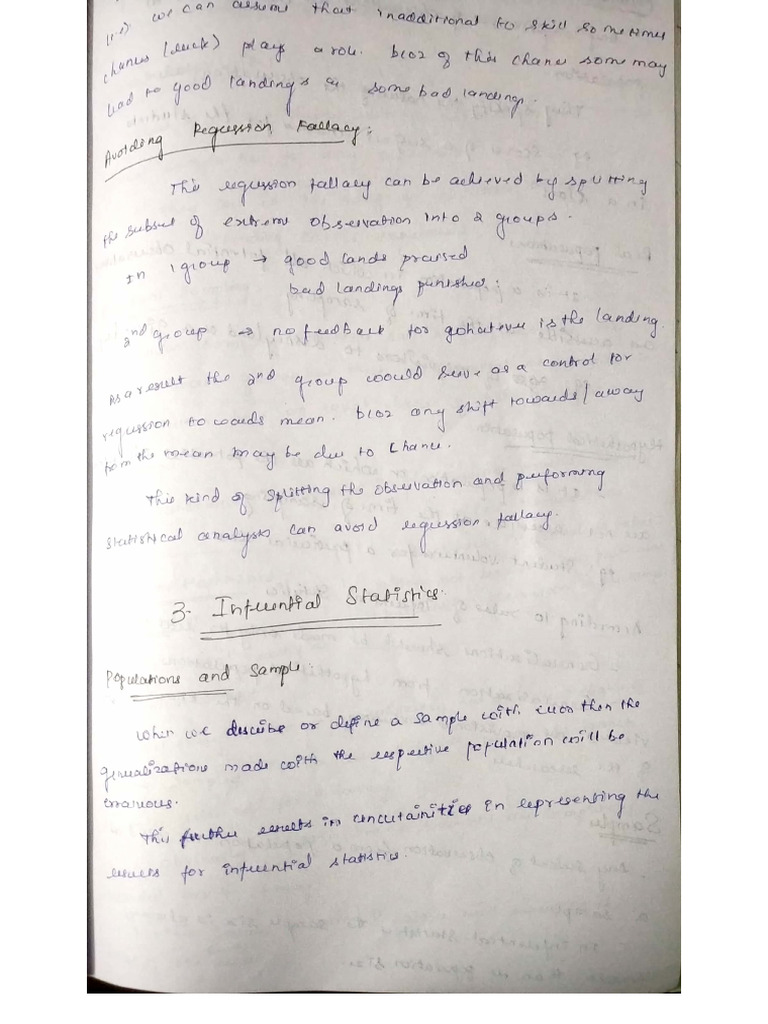 (i.e) we can assume that inadditional to skill sometimes
chances (luck) plays a role. bcoz of this chance some may
lead to good landings or some bad landings.
Avoiding Regression Fallacy:
This regression fallacy can be achieved by splitting
the subset of extreme observation into 2 groups.
In 1 group → good lands praised
bad landings punished.
2nd group → no feedback for gohatever is the landing.
As a result the 2nd group would serve as a control for
regression towards mean. bcoz any shift towards/away
from the mean may be due to chance.
This kind of splitting the observation and performing
statistical analysis can avoid regression fallacy.
3. Inferential Statistics.
Populations and Sample:
When we describe or define a sample with error then the
generalizations made with the respective population will be
erraneous.
This further results in uncertainities in representing the
results for inferential statistics.